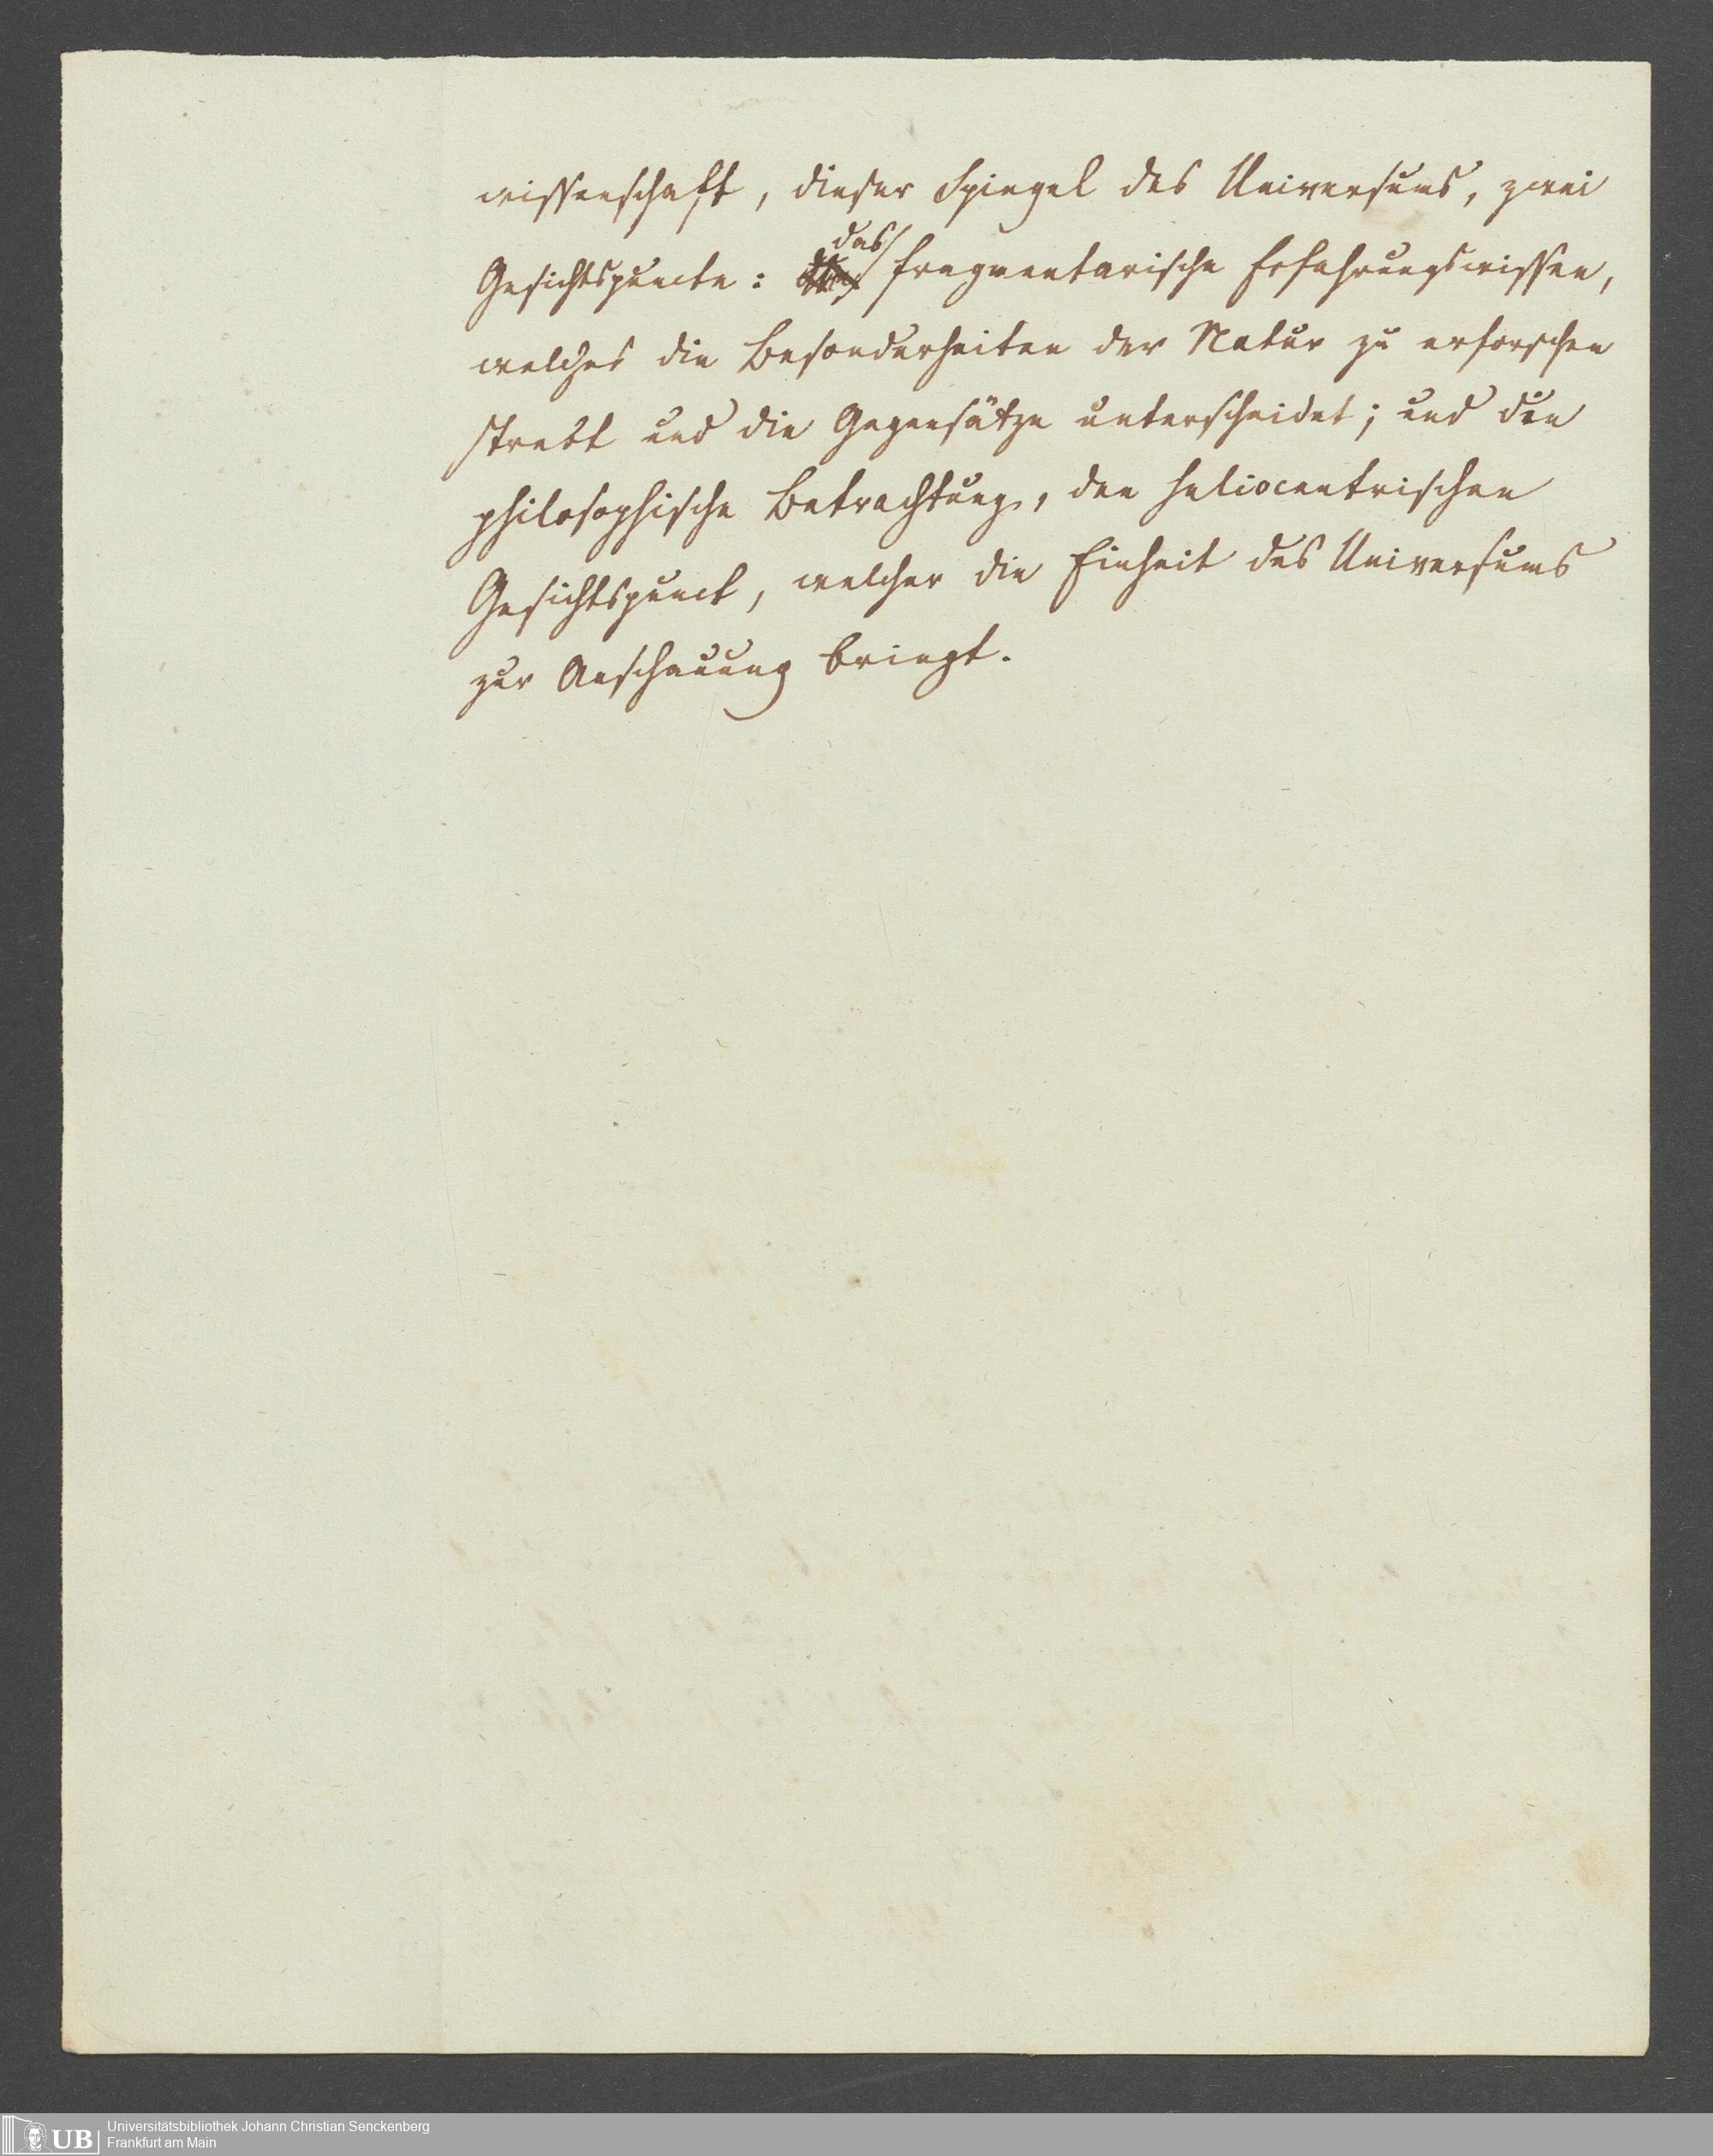 wissenschaft, dieser Spiegel des Universums, zwei
das
Gesichtspuncte: fragmentarische Erfahrungswissen,
welches die Besonderheiten der Natur zu erforschen
strebt und die Gegensätze unterscheidet; und die
philosophische Betrachtung, den heliocentrischen
Gesichtspunct, welcher die Einheit des Universums
zur Anschauung bringt.
UB
Universitätsbibliothek Johann Christian Senckenberg
Frankfurt am Main